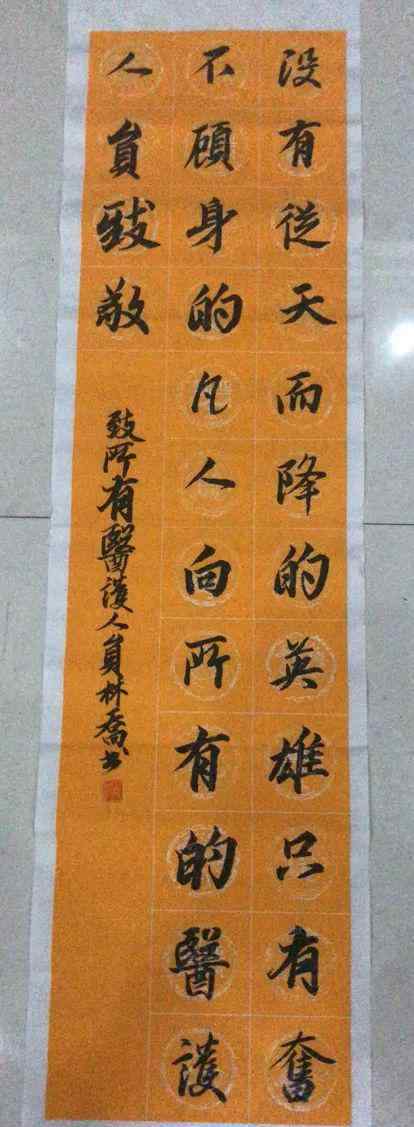 没有從天而降的英雄只有奮
不顧身的凡人向所有的醫護
人員致敬
致所有醫護人員林喬书